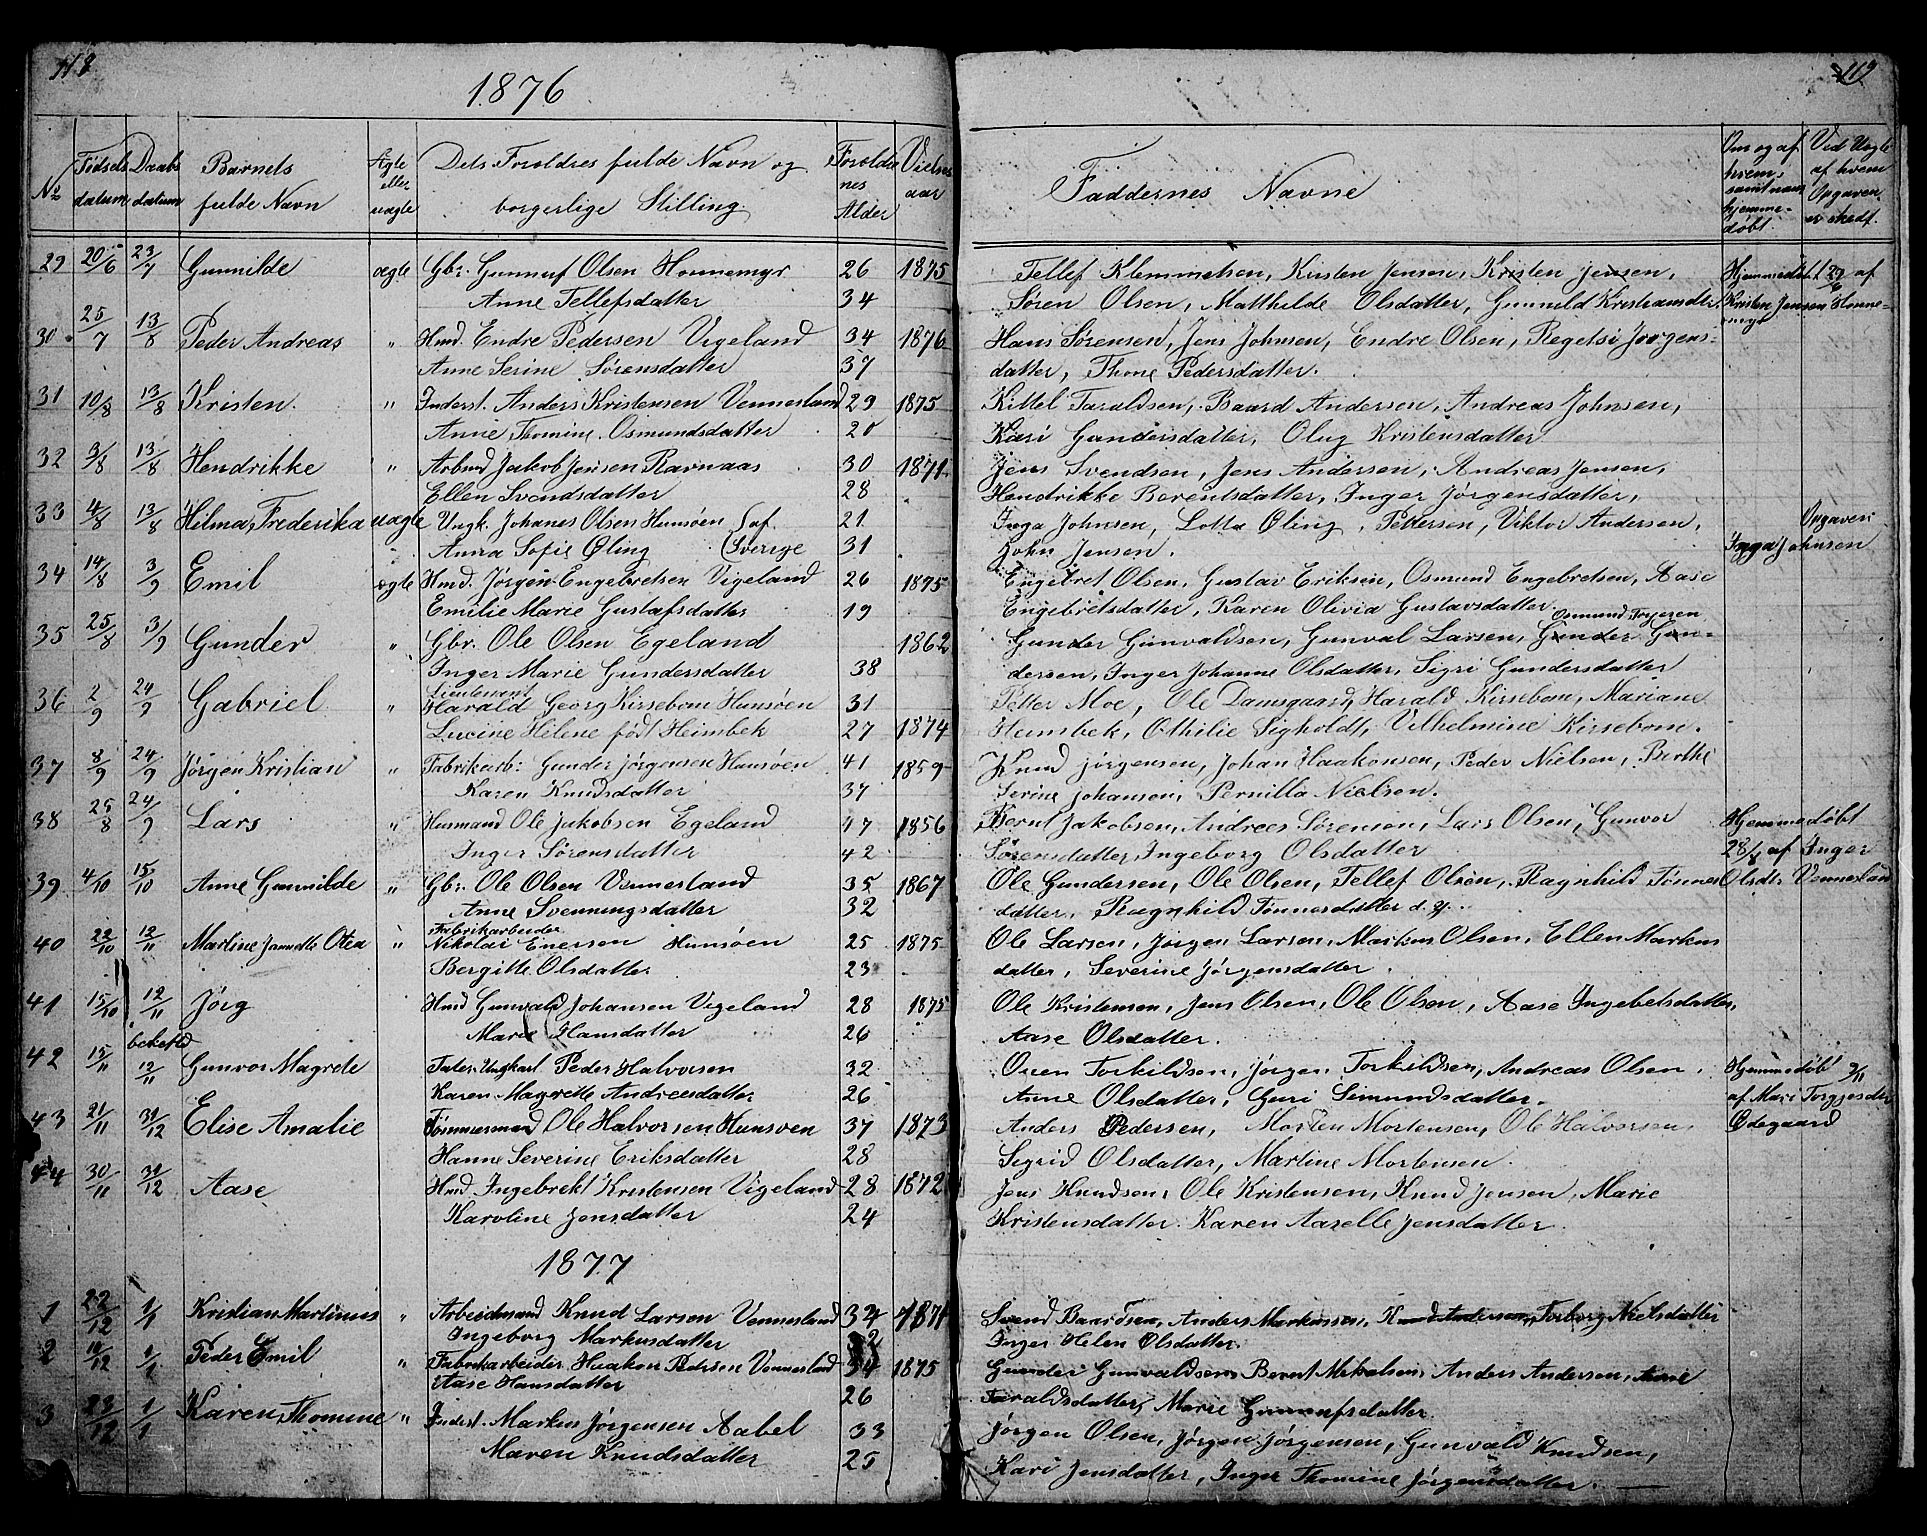 118
1876
No
Fødsels datum
Daabs datum
Barnets fulde Navn
Ægte eller uægte
Dets Forældres fulde Navn og borgerlige Stilling.
Forældrenes Alder
Vielses aar
29 20/6 23/7 Gunnilde ægte Gbr. Gunnuf Olsen Honnemyr 26 1875
Anne Tellefsdatter 34
30 25/7 13/8 Peder Andreas " Hmd. Endre Pedersen Vigeland 34 1876
Anne Serine Sørensdatter 37
31 10/8 13/8 Kristen. " Inderst. Anders Kristensen Vennesland 29 1875
Anne Thomine Osmundsdatter 20
32 3/8 13/8 Hendrikke " Arbmd Jakob Jensen Ravnaas 30 1871
Ellen Svendsdatter 28
33 4/8 13/8 Hilma Frederika uægte Ungk. Johanes Olsen Hunsøen } af 21
Anna Sofie Øling } Sverige 31
34 14/8 3/9 Emil ægte Hmd. Jørgen Engebretsen Vigeland 26 1875
Emilie Marie Gustafsdatter 19
35 25/8 3/9 Gunder " Gbr. Ole Olsen Egeland 1862
Inger Marie Gundersdatter 38
Lieutenant
36 2/9 24/9 Gabriel " Harald Georg Kirsebom Hunsøen 31
Lucine Hilene født Heimbek 27 1874
37 8/9 24/9 Jørgen Kristian " Fabrikarb: Gunder Jørgensen Hunsøen 41 1859
Karen Knudsdatter 37
38 25/8 24/9 Lars " Husmand Ole Jakobsen Egeland 47 1856
Inger Sørensdatter 42
39 4/10 15/10 Anne Gunnilde " Gbr. Ole Olsen Vennesland 35 1867
Anne Svenningsdatter 32
Fabrikarbeider
40 22/10 12/11 Martine Jannette Otea " Nikolai Enersen Hunsøen 25 1875
Bergitte Olsdatter 23
41 15/10 12/11 Jörg Hmd Gunvald Johansen Vigeland 28 1875
Marie Hansdatter 26
42 15/11 12/11 Gunvor Magrete Fater. Ungkarl Peder Halvorsen 32
Karen Magrette Andreesdatter 26
43 21/11 31/12 Elise Amalie Tømmermand Ole Halvorsen Hunsøen 37 1873
Hanne Severine Eriksdatter 28
44 30/11 31/12 Aase Hmd. Ingebrekt Kristensen Vigeland 28 1872
Karoline Jensdatter 24
1877
1 22/12 1/1 Kristian Martinus " Arbeidmand Knud Larsen Vennesland 34 1871
Ingeborg Markusdatter 32
2 1/1 Peder Emil " Fabrikarbeider Haakon Pedersen Vennesland 34 1875
Aase Hansdatter 26
3 23/12 1/1 Karen Thomine " Inderst. Markus Jørgensen Aabel 33
Maren Knudsdatter 25
119
Faddernes Navne
Om og af hvem samt naar hjemmedøbt.
Ved Uægte af hvem Opgaven er skedt.
Tellef Klemmetsen, Kirsten Jensen, Kristen Jensen, Hjemmedøbt af
Søren Olsen, Matthilde Olsdatter, Gunnild Kristiansdtr. Kristen Jensen Honnemyr
Hans Sørensen, Jens Johnsen, Endre Olsen, Regetsi Jørgens-
datter, Thone Pedersdatter.
Kittel Taraldsen, Baard Andersen, Andreas Johnsen,
Kari Gundersdatter, Olug Kristensdatter
Jens Svendsen, Jens Andersen, Andreas Jensen,
Hendrikke Berentsdatter, Inger Jørgensdatter,
Inga Johnsen, Lotta Øling, Pettersen, Viktor Andersen, Opgaver:
John Jensen. Inga Johnsen
Engebret Olsen, Gustav Eriksen, Osmund Engebretsen, Aase
Engebretsdatter, Karen Olivia Gustavsdatter
Osmund Torjesen
Gunder Gunvaldsen, Gunval Larsen, Gunder Gun-
dersen, Inger Johanne Olsdatter, Sigri Gundersdatter
Petter Moe, Ole Damsgaard, Harald Kirsebom, Mariane
Heimbek, Othilie Sigholdt, Vilhelmine Kirsebom.
Knud Jørgensen, Johan Haakonsen, Peder Nielsen, Berthe
Serine Johansen, Pernilla Nielsen.
Bernt Jakobsen, Andreas Sørensen, Lars Olsen, Gunvor Hjemmedøbt
Sørensdatter, Ingeborg Olsdatter 28/8 af Inger
Ole Gundersen, Ole Olsen, Tellef Olsen, Ragnhild Tønnes Olsdtr Vennesland
datter, Ragnhild Tønnesdatter d. y.
Ole Larsen, Jørgen Larsen, Markus Olsen, Ellen Markus
datter, Severine Jørgensdatter.
Ole Kristensen, Jens Olsen, Ole Olsen, Aase Ingebetsdatter,
Aase Olsdatter.
Oven Torkildsen, Jörgen Torkildsen, Andreas Olsen. Hjemmedøbt 9/11
Anne Olsdatter, Guri Simundsdatter. af Mari Torgjesdtr
Anders Pedersen, Morten Mortensen, Ole Halvorsen. Ødegaard
Sigrid Olsdatter, Martine Mortensen.
Jens Knudsen, Ole Kristensen, Knud Jensen, Marie
Kristensdatter. Karen Aaselle Jensdatter.
Svend Baardsen, Anders Markussen, Knud Andersen, Torborg Nielsdatter
Inger Helen Olsdatter.
Gunder Gunvaldsen, Berent Mikalsen, Anders Andersen, Anne
Taraldsdatter, Marie Gunnufsdatter.
Jørgen Olsen, Jørgen Jørgensen, Gunvald Knudsen,
Kari Jensdatter, Inger Thomine Jørgensdatter.